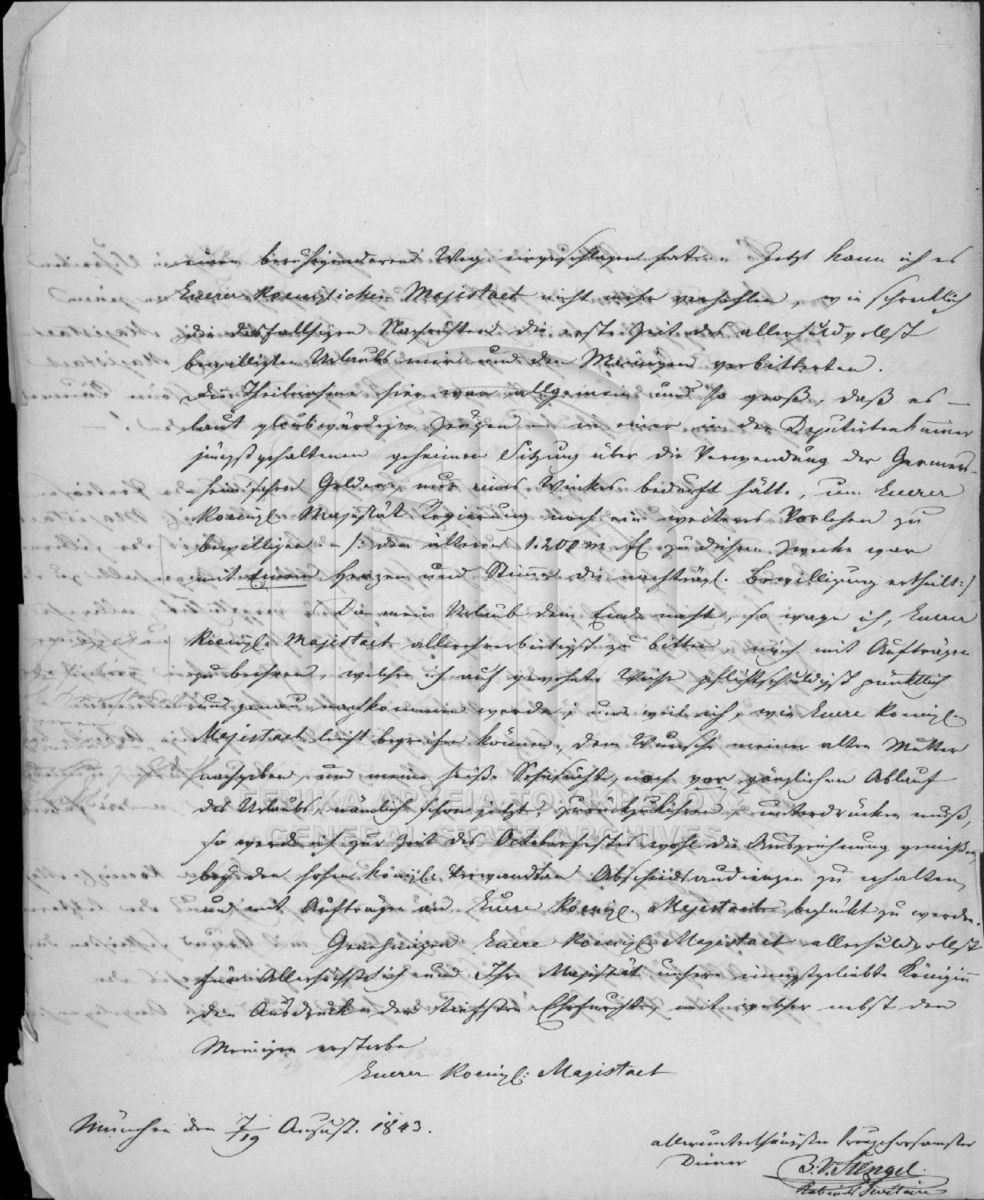 einen beruhigenderen Weg eingeschlagen hat. Jetzt kann ich es
Euerer Koeniglichen Majestaet nicht mehr verhehlen, wie schrecklich
die diesfallsigen Nachrichten die erste Zeit des allerhuldvollst
bewilligten Urlaubs mir und den Meinigen verbitterten.
Die Theilnahme hier war allgemein und so groß, daß es –
laut glaubwürdiger Zeugen – in einer in der Deputirtenkammer
jüngst gehaltenen geheimen Sitzung über die Verwendung der Germers-
heimischen Gelder, nur eines Winkes bedurft hätte, um Euerer
Koenigl. Majestät Regierung noch ein weiteres Darlehen zu
bewilligen – /: dem älteren 1.200 m fl zu diesem Zwecke war
mit einem Herzen und Stimme die nachträgl. Bewilligung ertheilt :/
Da mein Urlaub dem Ende naht, so wage ich, Euere
Koenigl. Majestaet allerehrerbietigst zu bitten, mich mit Aufträgen
zu beehren, welchen ich auf gewohnte Weise pflichtschuldigst pünktlich
und genau nachkommen werde; und weil ich, wie Euere Koenigl.
Majestaet leicht begreifen können, dem Wunsche meiner alten Mutter
nachgeben, und meine heiße Sehnsucht, noch vor gänzlichem Ablauf
des Urlaubs, nämlich schon jetzt, zurückzukehren, unterdrücken muß,
so werde ich zur Zeit des Octoberfestes wohl die Auszeichnung genießen
bey den hohen königl. Verwandten Abschiedsaudienzen zu erhalten,
und mit Aufträgen an Euere Koenigl. Majestaet beglückt zu werden.
Genehmigen Euere Koenigl. Majestaet allerhuldvollst
für Allerhöchstsich und Ihre Majestät unsere innigstgeliebte Königinn
den Ausdruck der tiefsten Ehrfurcht, mit welcher nebst den
Meinigen ersterbe
Euerer Koenigl. Majestaet
München den 7/19 August. 1843.
allerunterthänigster treugehorsamster
Diener
Stengel.
ΓΕΝΙΚΑ ΑΡΧΕΙΑ ΤΟΥ ΚΡΑΤΟΥΣ
GENERAL STATE ARCHIVES